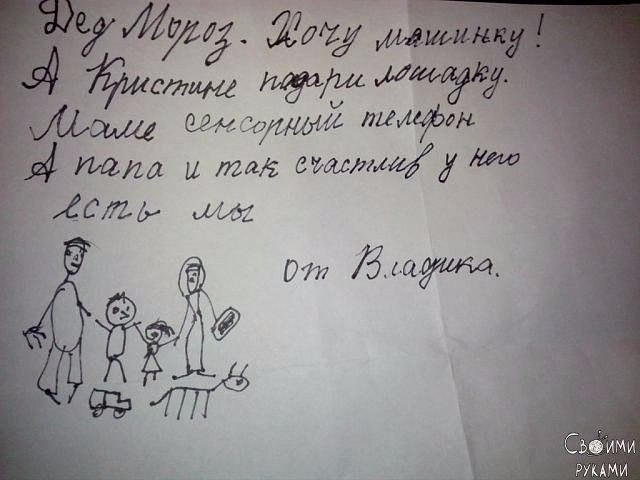 Дед Мороз. Хочу машинку!
А Кристине подари лошадку.
Маме сенсорный телефон
А папа и так счастлив у него
есть мы
от Владика.
Своими
руками